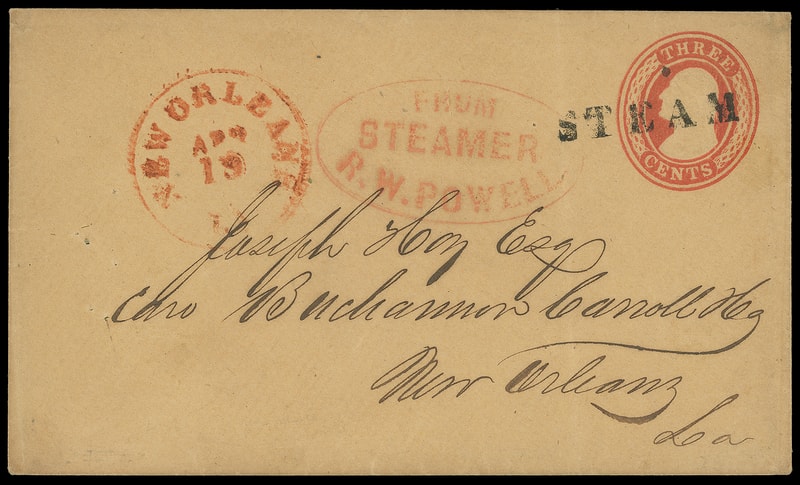 NEW ORLEANS
APR
19
La
FROM
STEAMER
R. W. POWELL
STEAM
THREE
CENTS
Joseph Hoy Esq
Care Buchannon Carroll &Co
New Orleans
La